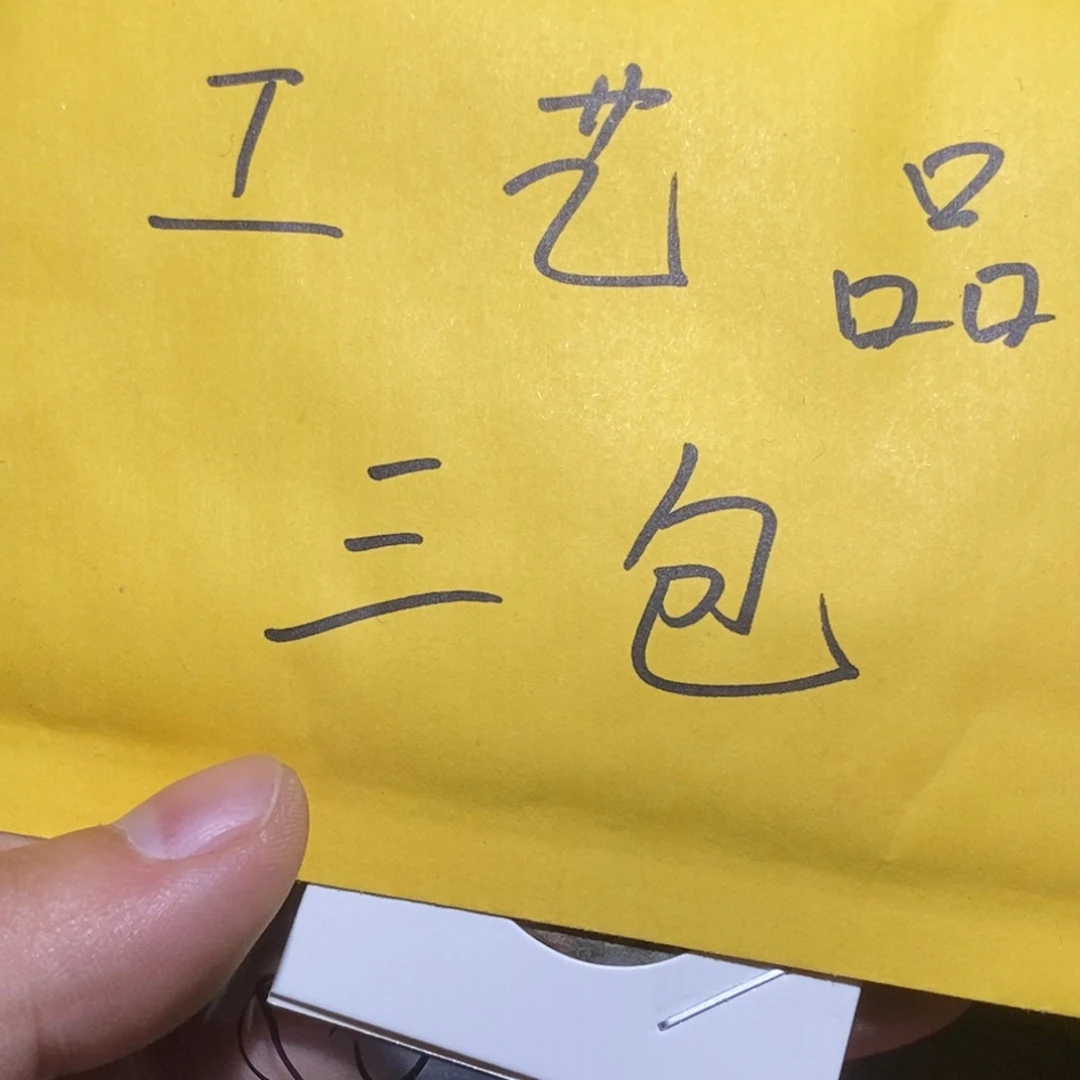 工艺品
三包